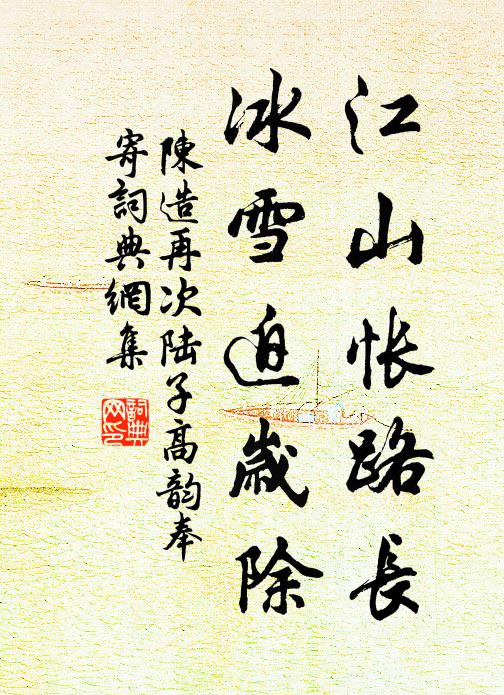 江山悵路長
冰雪迫歲除
陳造再次陸子高韵奉
寄詞典網集
詞典
网印